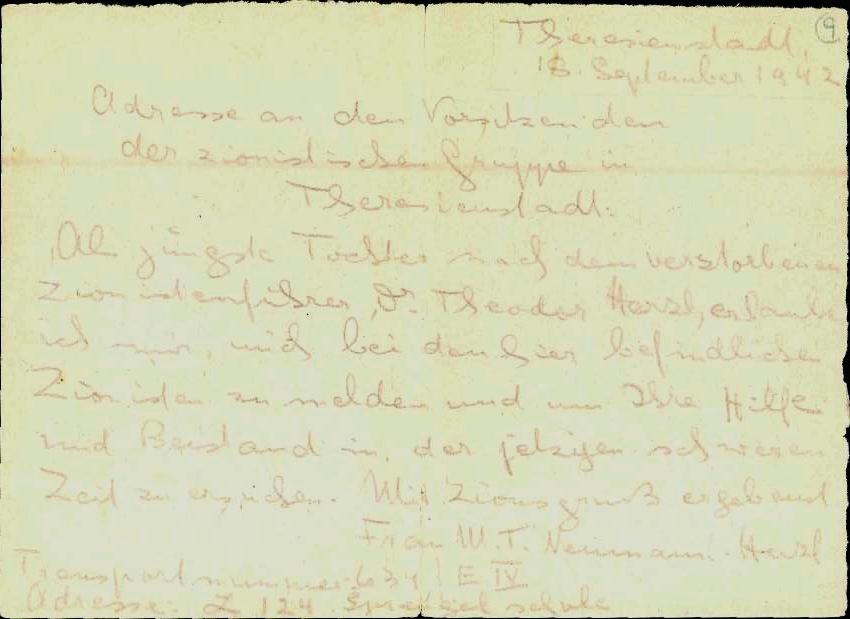 9
Theresienstadt,
18. September 1942
Adresse an den Vorsitzenden
der zionistischen Gruppe in
Theresienstadt.
Als jüngste Tochter nach dem verstorbenen
Zionistenführer, Dr. Theodor Herzl, erlaube
ich mir, mich bei den hier befindlichen
Zionisten zu melden und um Ihre Hilfe
und Beistand in der jetzigen schweren
Zeit zu ersuchen. Mit Zionsgruß ergebenst
Frau M. T. Neumann-Herzl
Transportnummer 634 E IV
Adresse: L 124